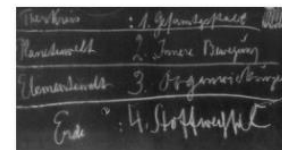 Tierkreis : 1. Gesamtgestalt
Planetenwelt 2. Innere Bewegung
Elementenwelt 3. Organwirkungen
Erde : 4. Stoffwechsel